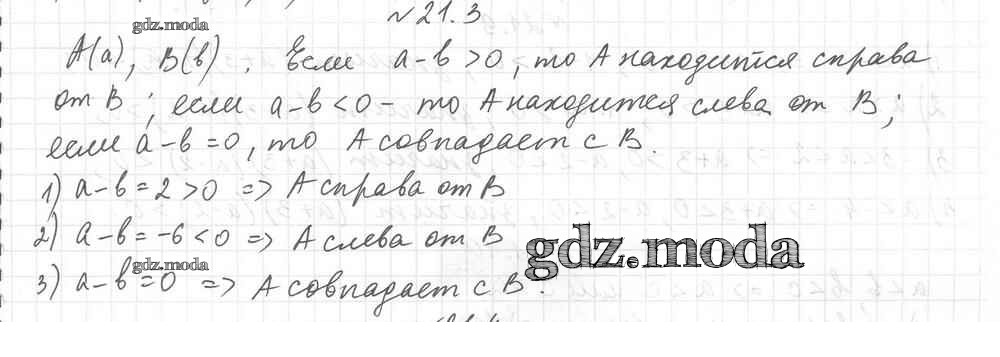 №21.3
gdz.moda
A(a), B(b). Если a-b>0, то A находится справа
от B; если a-b<0 - то A находится слева от B;
если a-b=0, то A совпадает с B.
1) a-b=2>0 => A справа от B
2) a-b=-6<0 => A слева от B
gdz.moda
gdz.moda
3) a-b=0 => A совпадает с B.